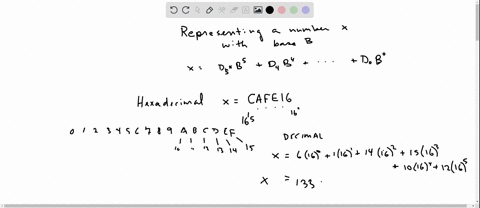 Representing a number x
with base B
x = D5*B^5 + D4 B^4 + · · · · + D0 B^0
Hexadecimal x = CAFE16
16^5 . . . . 16^0
0 1 2 3 4 5 6 7 8 9 A B C D E F
10 11 12 13 14 15
DECIMAL
x = 6(16)^0 + 1(16)^1 + 14(16)^2 + 15(16)^3
+ 10(16)^4 + 12(16)^5
x = 133